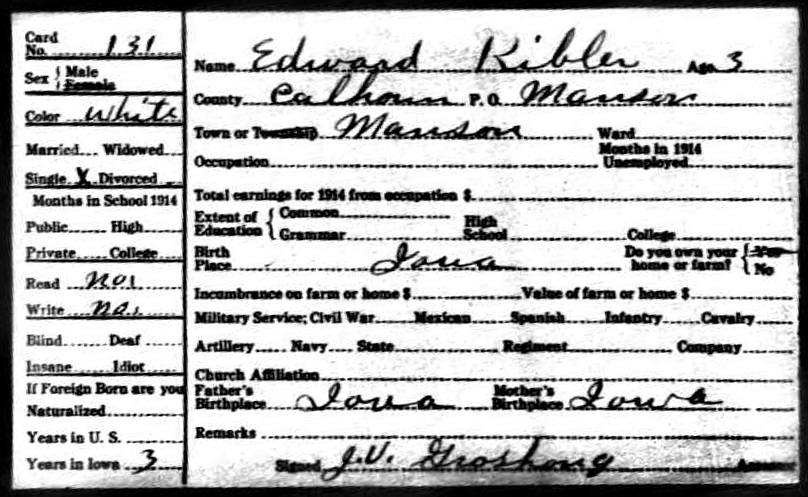 Card No. 131
Sex { Male
Female
Color White
Married Widowed
Single X Divorced
Months in School 1914
Public High
Private College
Read No.
Write No.
Blind Deaf
Insane Idiot
If Foreign Born are you
Naturalized
Years in U. S.
Years in Iowa 3
Name Edward Kibler Age 3
County Calhoun P. O. Manson
Town or Township Manson Ward
Occupation Months in 1914 Unemployed
Total earnings for 1914 from occupation $
Extent of Education { Common
Grammar High School College
Birth Place Iowa Do you own your home or farm? { Yes
No
Incumbrance on farm or home $ Value of farm or home $
Military Service; Civil War Mexican Spanish Infantry Cavalry
Artillery Navy State Regiment Company
Church Affiliation
Father's Birthplace Iowa Mother's Birthplace Iowa
Remarks
Signed J.V. Groshong Assessor